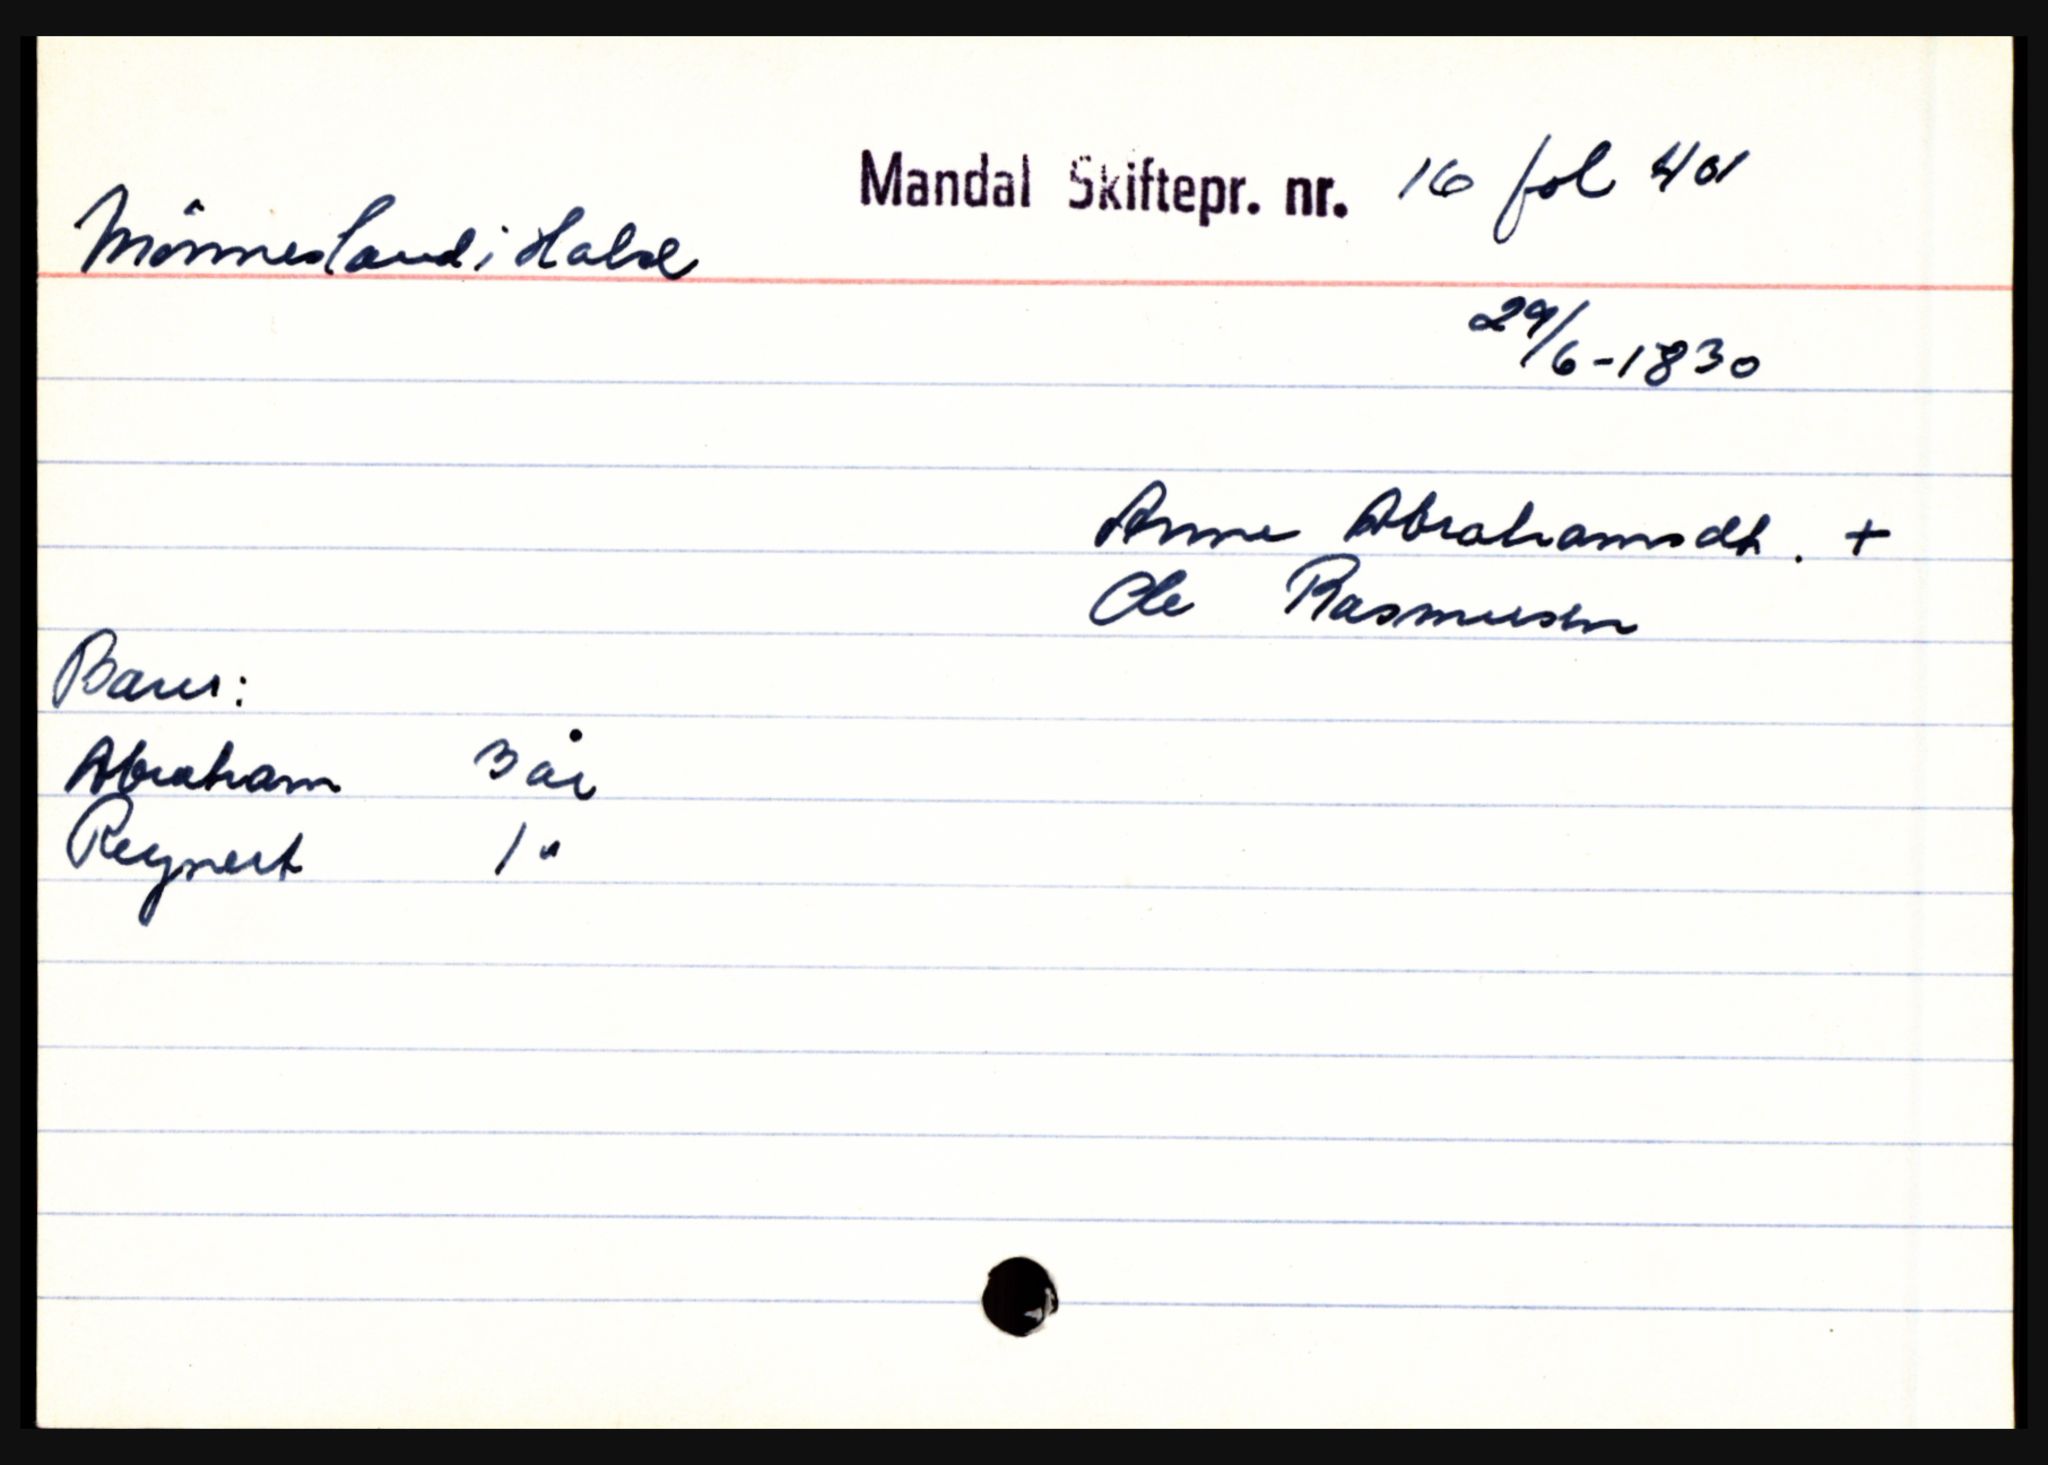 Mandal Skiftepr. nr. 16 fol 401
Mønnesland i Halse
29/6-1830
Anne Abrahamsdt. +
Ole Rasmusen
Barn:
Abraham 3 år
Reynert 1 "